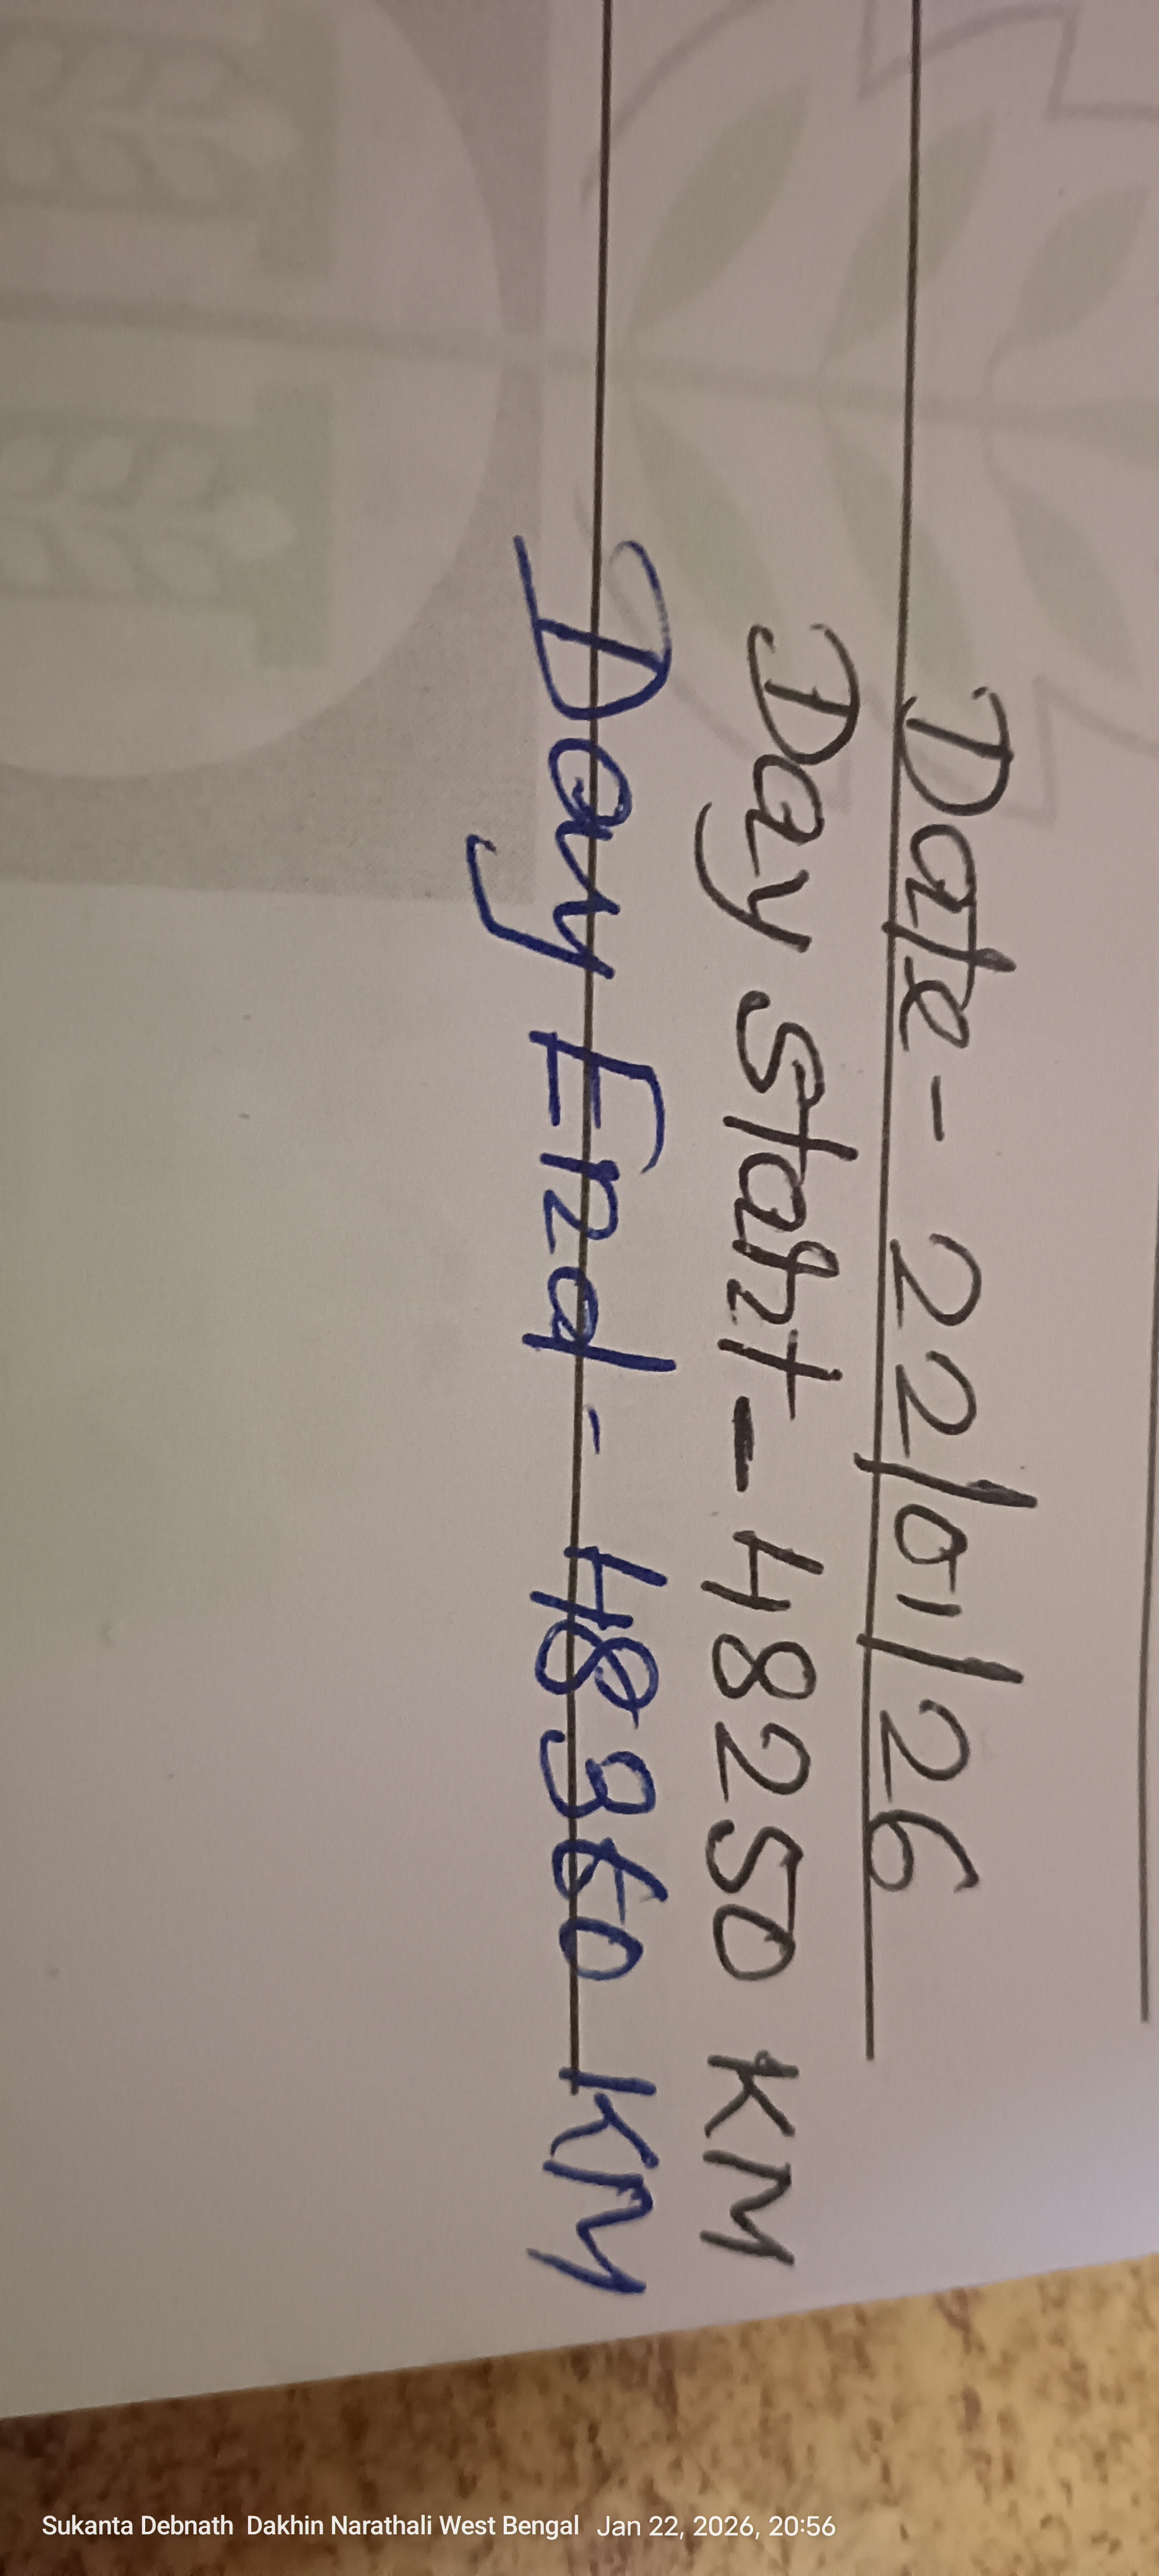 Date - 22/01/26
Day Start - 48250 KM
Day End - 48360 KM
Sukanta Debnath Dakhin Narathali West Bengal Jan 22, 2026, 20:56